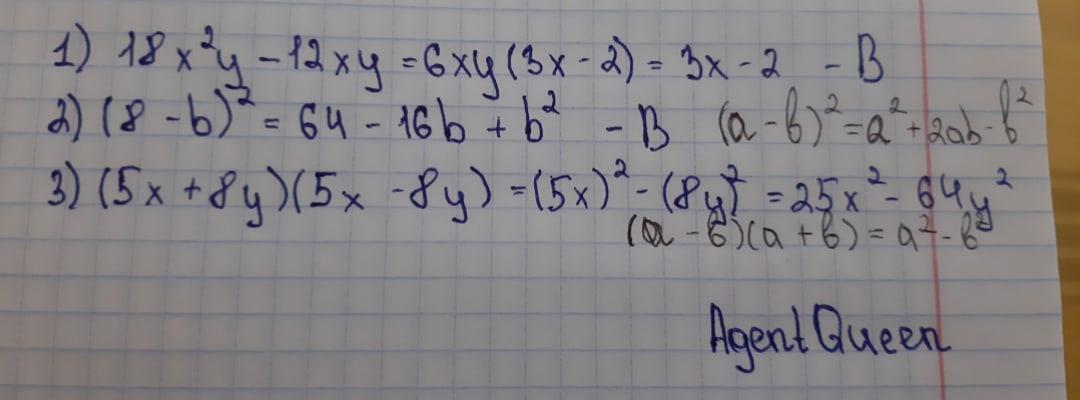 1) 18x²y - 12xy = 6xy(3x - 2) = 3x - 2 - В
2) (8 - b)² = 64 - 16b + b² - В (a - b)² = a² + 2ab - b²
3) (5x + 8y)(5x - 8y) = (5x)² - (8y)² = 25x² - 64y²
(a - b)(a + b) = a² - b²
AgentQueen